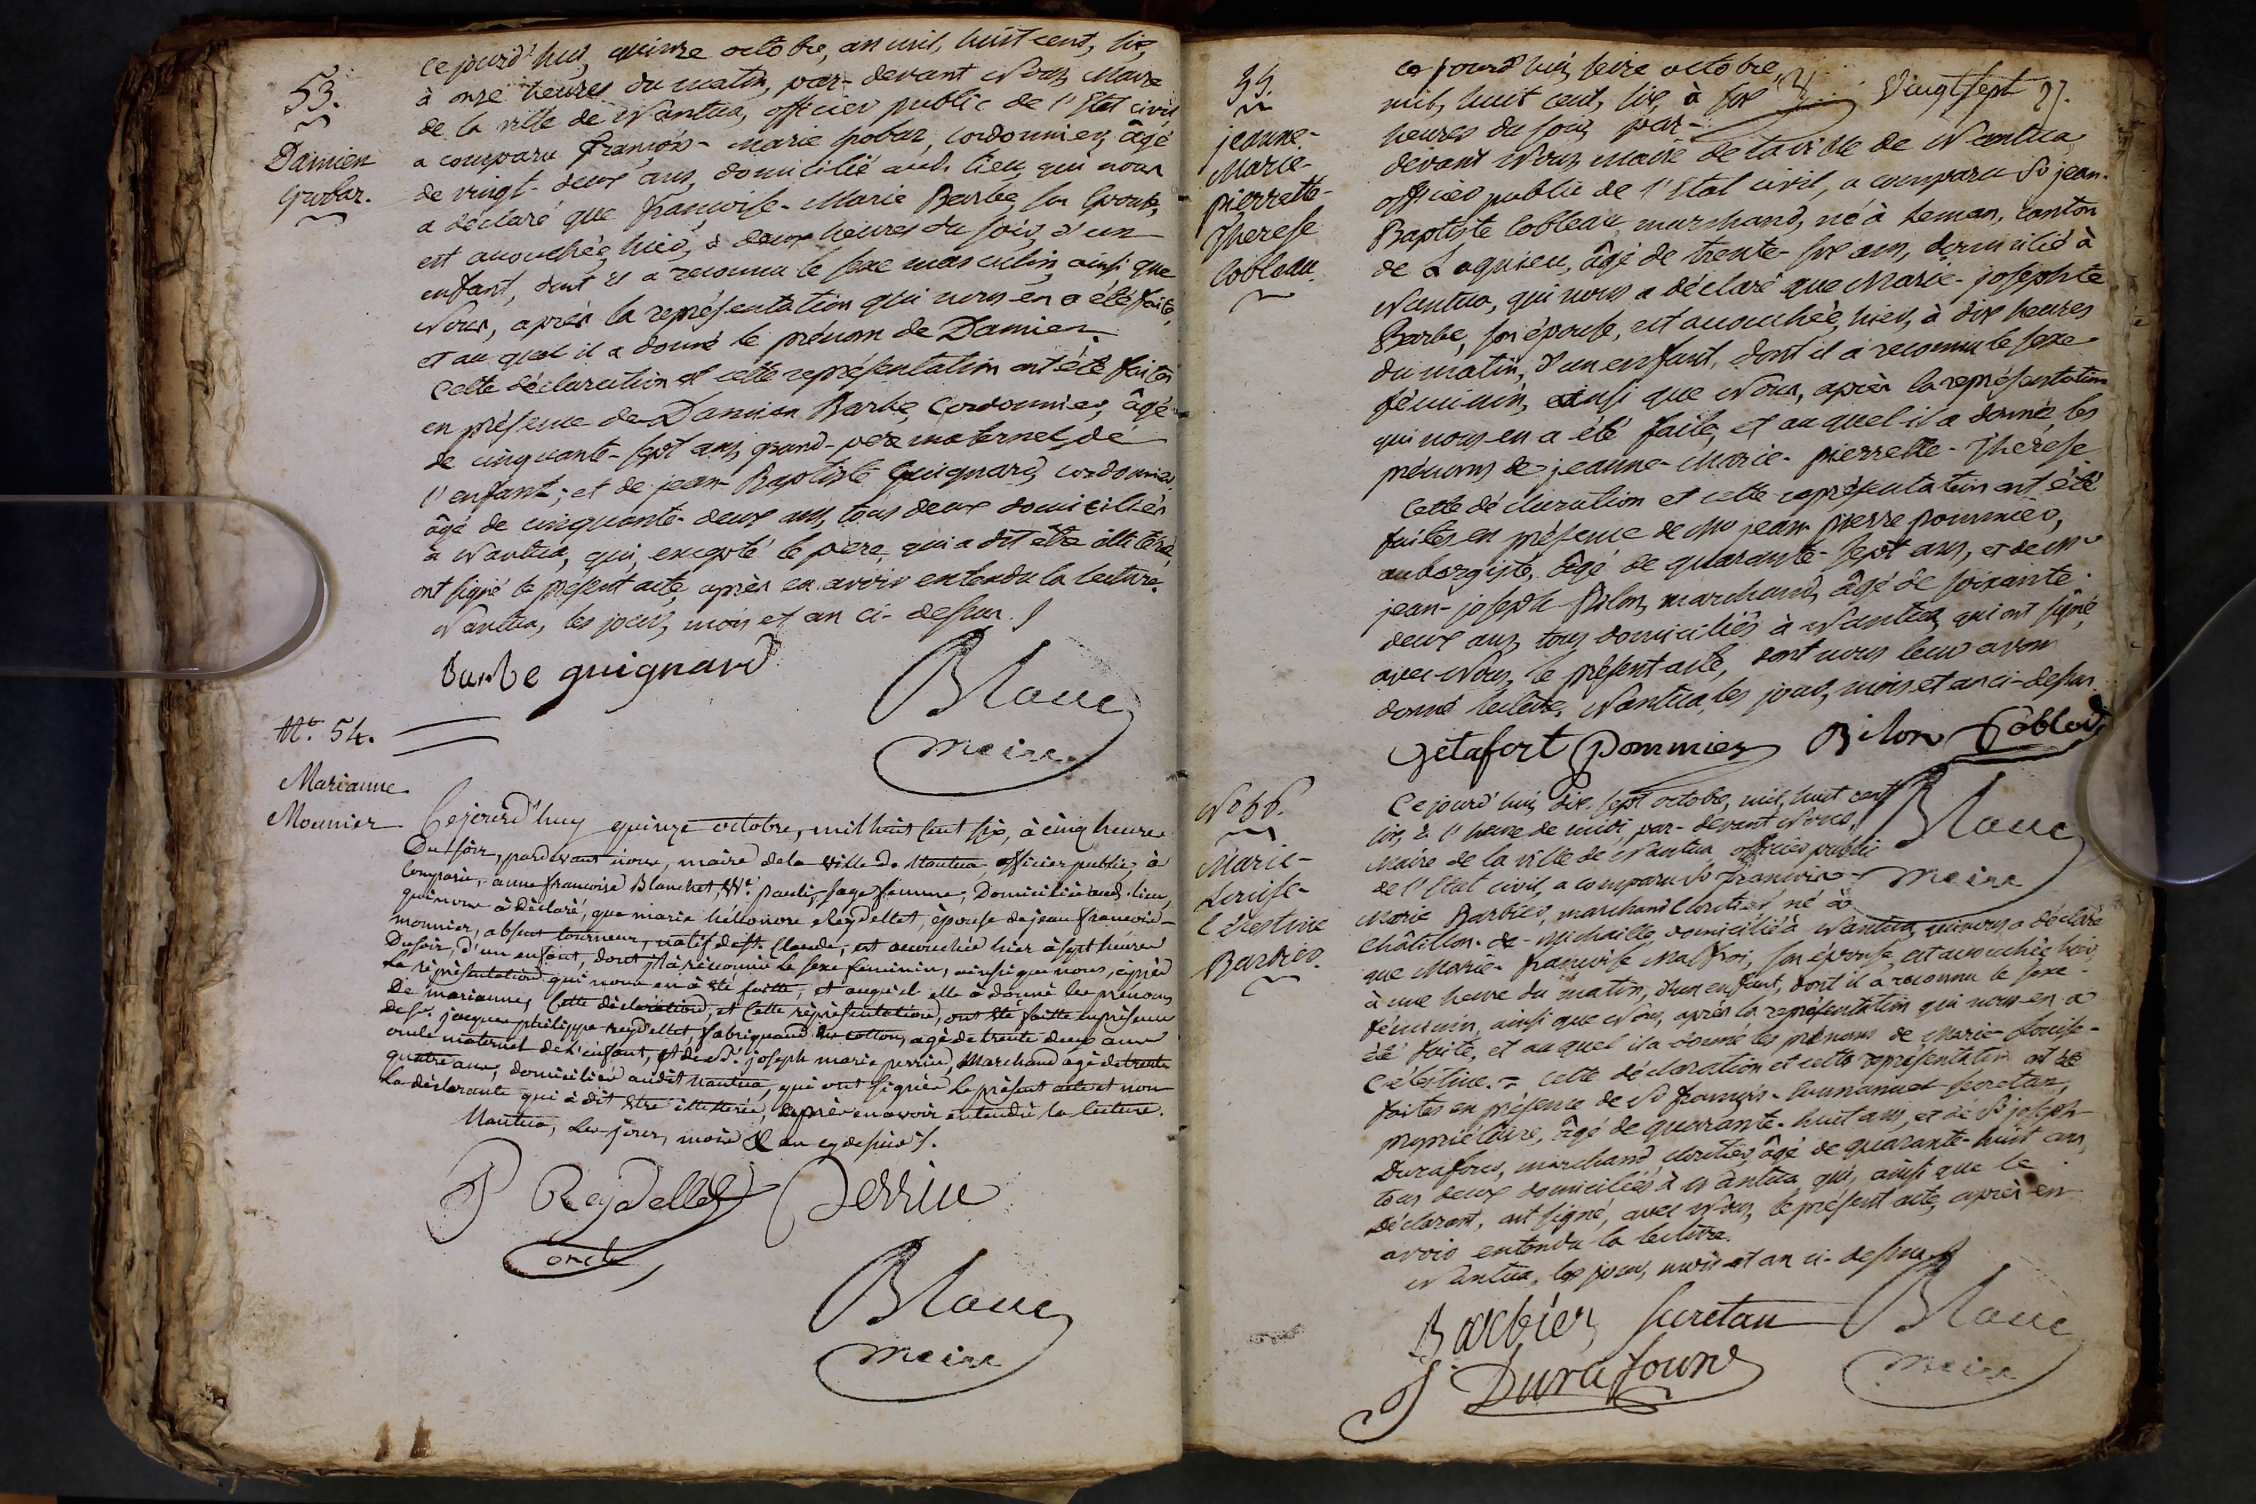 53.
Damien
Gobaz.
Ce jourd'hui, quinze octobre, an mil, huit cent, six,
à onze heures du matin, par-devant Nous, Maire
de la ville de Nantua, officier public de l'Etat civil
a comparu françois-marie gobaz, cordonnier, âgé
de vingt-deux ans, domicilié aud. lieu, qui nous
a déclaré que françoise-Marie Barbe, son épouse,
est accouchée, hier, à deux heures du soir, d'un
enfant, dont il a reconnu le sexe masculin, ainsi que
Nous, après la représentation qui nous en a été faite,
et au quel il a donné le prénom de Damien.
Cette déclaration et cette représentation ont été faites
en présence de Damien Barbe, Cordonnier, âgé
de cinquante-sept ans, grand-père maternel de
l'enfant; et de jean-Baptiste Guignard, cordonnier,
âgé de cinquante-deux ans, tous deux domiciliés
à Nantua, qui, excepté le pere, qui a dit être illitéré,
ont signé le présent acte, après en avoir entendu la lecture.
Nantua, les jour, mois et an ci-dessus.
Barbe guignard
Blanc
maire
No. 54.
Marianne
Mounier
Cejourd'huy quinze octobre, mil huit cent six, à cinq heure
Du soir, pardevant nous, maire de la ville de Nantua, officier public, à
Comparu, anne françoise Blanchet Ve. pauli, sage femme, Domiciliée aud. lieu,
qui nous à déclaré, que marie héléonore Reydellet, épouse de jean françois-
mounier, absent tourneur, natif de St. Claude, est accouchée hier à sept heures
Du soir, d'un enfant, dont j'là réconnu le sexe féminin, ainsi que nous, après
la réprésentation qui nous en à été faitte, et auquel elle à donné les prénoms
De marianne, Cette déclaration, et cette réprésentation, ont été faitte en présence
de Sr. jacque philippe reydellet, fabriquand de cotton, agé de trente deux ans
oncle maternel de l'enfant, et de Sr. joseph marie perrin, Marchand agé de trente
quatre ans, domiciliés audit Nantua, qui ont signés le présent acte et non
la déclarante qui à dit être illittérée, après en avoir entendu la lecture.
Nantua, les jour, mois & an cy dessus.
P Reydellet Perrin
oncle
Blanc
maire
Vingt sept 27.
55.
jeanne-
Marie-
pierrette-
Therese
Cobleau.
ce jourd'hui, seize octobre,
mil, huit cent, six, à six
heures du soir, par-
devant Nous, Maire de la ville de Nantua,
officier public de l'Etat civil, a comparu Sr jean-
Baptiste Cobleau, marchand, né à Leman, canton
de Lagnieu, âgé de trente-six ans, domicilié à
Nantua, qui nous a déclaré que Marie-josephte
Barbe, son épouse, est accouchée, hier, à dix heures
du matin, d'un enfant, dont il a reconnu le sexe
féminin, ainsi que Nous, après la représentation
qui nous en a été faite, et au quel il a donné les
prénoms de jeanne-Marie-pierrette-Thérèse
Cette déclaration et cette représentation ont été
faites en présence de Mr jean-pierre pommier,
aubergiste, âgé de quarante-sept ans, et de Mr
jean-joseph Bilon, marchand, âgé de soixante-
deux ans, tous domiciliés à Nantua, qui ont signé,
avec Nous, le présent acte, dont nous leur avons
donné lecture, Nantua, les jour, mois et an ci-dessus.
Pommier Bilon Coblod
Blanc
maire
No 56.
Marie-
Louise-
Célestine
Barbier.
Ce jourd'hui, dix-sept octobre, mil, huit cent
six, à l'heure de midi, par-devant Nous,
Maire de la ville de Nantua, officier public
de l'Etat civil, a comparu Sr françois-
Marie Barbier, marchand Cloutier, né à
Châtillon-de-Michaille, domicilié à Nantua, qui nous a déclaré
que Marie-françoise Maffroi, son épouse, est accouchée hier,
à une heure du matin, d'un enfant, dont il a reconnu le sexe
féminin, ainsi que Nous, après la représentation qui nous en a
été faite, et au quel il a donné les prénoms de Marie-Louise-
Célestine. Cette déclaration et cette représentation ont été
faites en présence de Sr françois-Emmanuel Secretan,
propriétaire, âgé de quarante-huit ans, et de Sr joseph
Durafour, marchand cloutier, âgé de quarante-huit ans,
tous deux domiciliés à Nantua, qui, ainsi que le
Déclarant, ont signé, avec Nous, le présent acte, après en
avoir entendu la lecture.
Nantua, les jour, mois et an ci-dessus.
Barbier Secretan
J Durafour
Blanc
maire